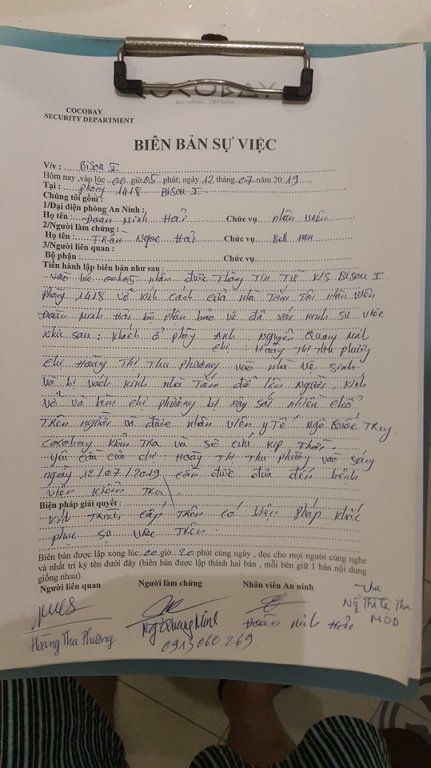 COCOBAY
COCOBAY
SECURITY DEPARTMENT
BIÊN BẢN SỰ VIỆC
V/v : Bisou I
Hôm nay ,vào lúc 00 giờ 05 phút; ngày 12 tháng 07 năm 2019
Tại : phòng 1418 Bisou I
Chúng tôi gồm :
1/Đại diện phòng An Ninh :
Họ tên : Đoàn Minh Hải Chức vụ nhân viên
2/Người làm chứng :
Họ tên : Trần Ngọc Hải Chức vụ Bell man
3/Người liên quan :
Bộ phận : Chức vụ
Tiến hành lập biên bản như sau :
Vào lúc nhận được Thông Tin Từ K/S Bisou I
phòng 1418 vỡ kính cạnh cửa nhà Tắm Tôi nhân viên
Đoàn Minh Hải bộ phận bảo vệ đã xác minh sự việc
như sau : khách ở phòng Anh Nguyễn Quang Minh
chị Hoàng Thị Thu phương
chị Hoàng Thị Thu phương vào nhà vệ sinh
và bị vách kính nhà Tắm đổ lên người kính
vỡ và làm chị phương bị nhiều chỗ
Trên người và được nhân viên y Tế Ngô Quốc
Cocobay kiểm Tra và sơ cứu kịp Thời
yêu cầu của chị Hoàng Thị Thu phương vào sáng
ngày 12/07/2019 cần được đưa đến bệnh
viện khám Tra
Biện pháp giải quyết :
kính Trình cấp Trên có biện pháp khắc
phục sự việc Trên
Biên bản được lập xong lúc 00 giờ 20 phút cùng ngày , đọc cho mọi người cùng nghe
và nhất trí ký tên dưới đây (biên bản được lập thành hai bản , mỗi bên giữ 1 bản nội dung
giống nhau).
Người liên quan Người làm chứng Nhân viên An ninh
Hoàng Thu Phương Ng Quang Minh Đoàn Minh Hải MOD
0913060269